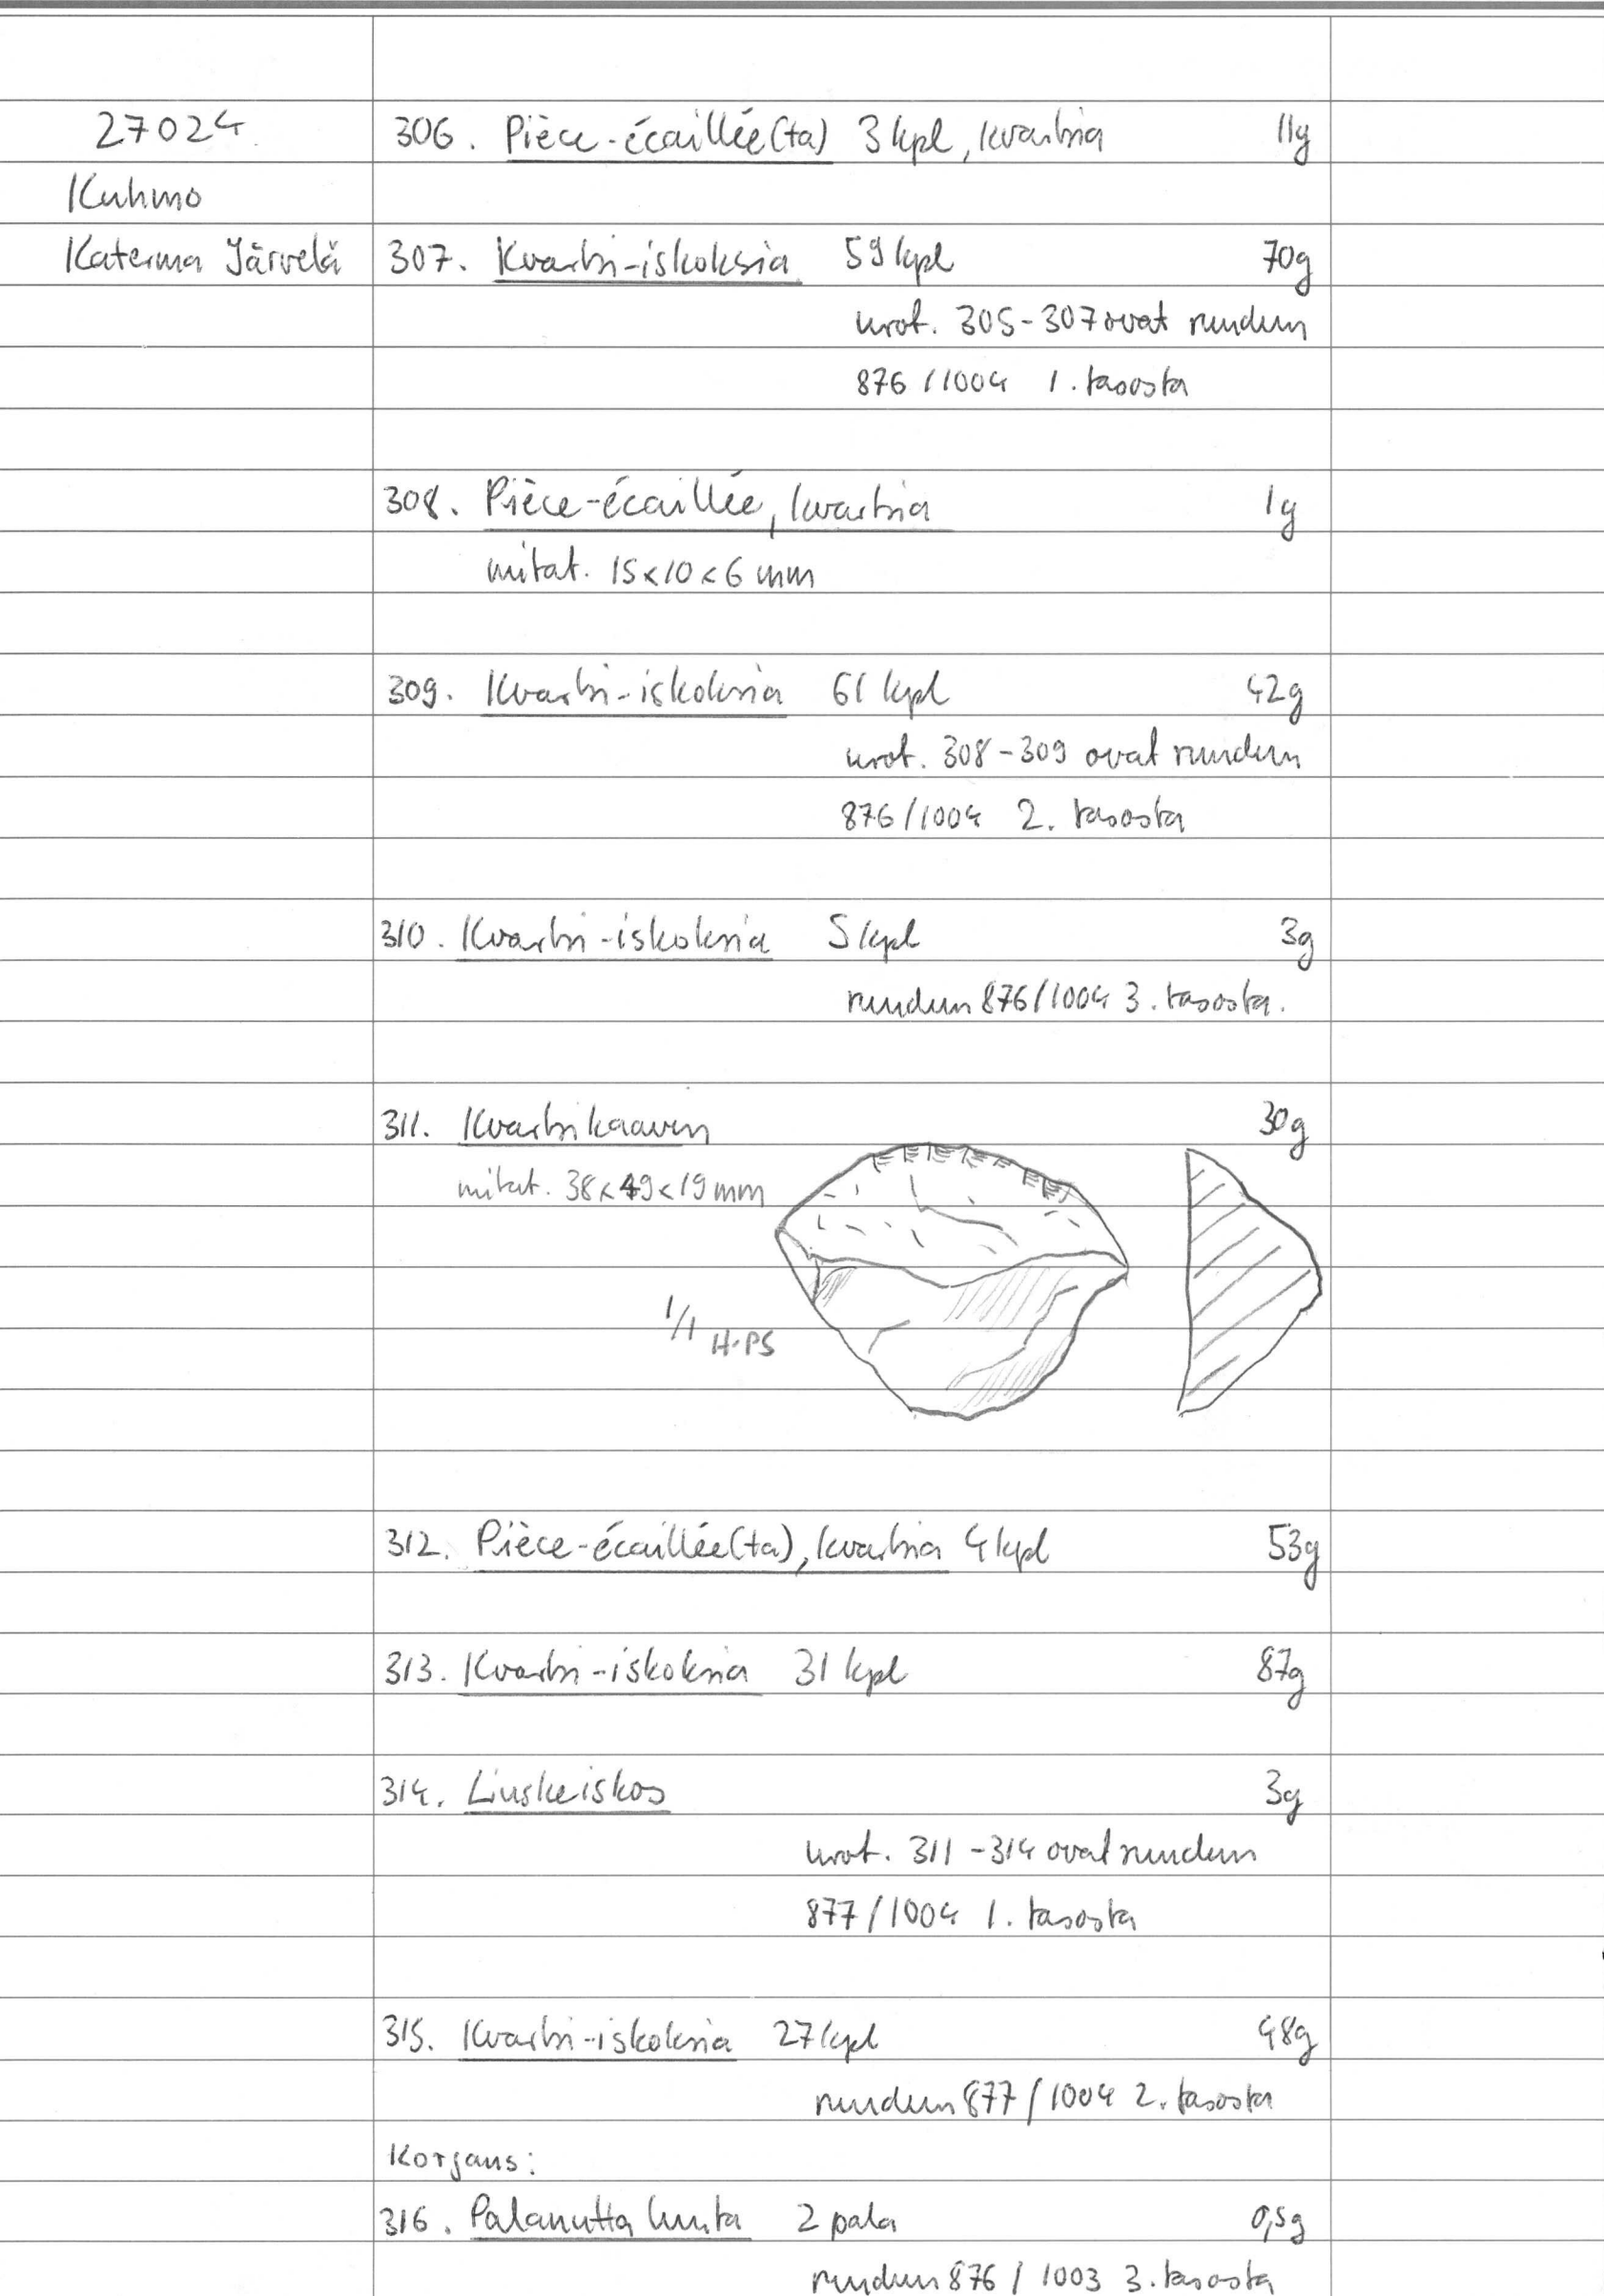 27024
306. Pièce-écaillée(ta) 3 kpl, kvartsia 11g
Kuhmo
Katerma Järvelä
307. Kvartsi-iskoksia 59 kpl 70g
nrot. 305-307 ovat ruudun
876/1004 1. tasosta
308. Pièce-écaillée, kvartsia 1g
mitat. 15x10x6 mm
309. Kvartsi-iskoksia 61 kpl 42g
nrot. 308-309 ovat ruudun
876/1004 2. tasosta
310. Kvartsi-iskoksia 5 kpl 3g
ruudun 876/1004 3. tasosta.
311. Kvartsikaavin 30g
mitat. 38x49x19 mm
1/1 H-PS
312. Pièce-écaillée(ta), kvartsia 4 kpl 53g
313. Kvartsi-iskoksia 31 kpl 87g
314. Liuskeiskos 3g
nrot. 311-314 ovat ruudun
877/1004 1. tasosta
315. Kvartsi-iskoksia 27 kpl 48g
ruudun 877/1004 2. tasosta
Korjaus:
316. Palanutta luuta 2 pala 0,5g
ruudun 876/1003 3. tasosta